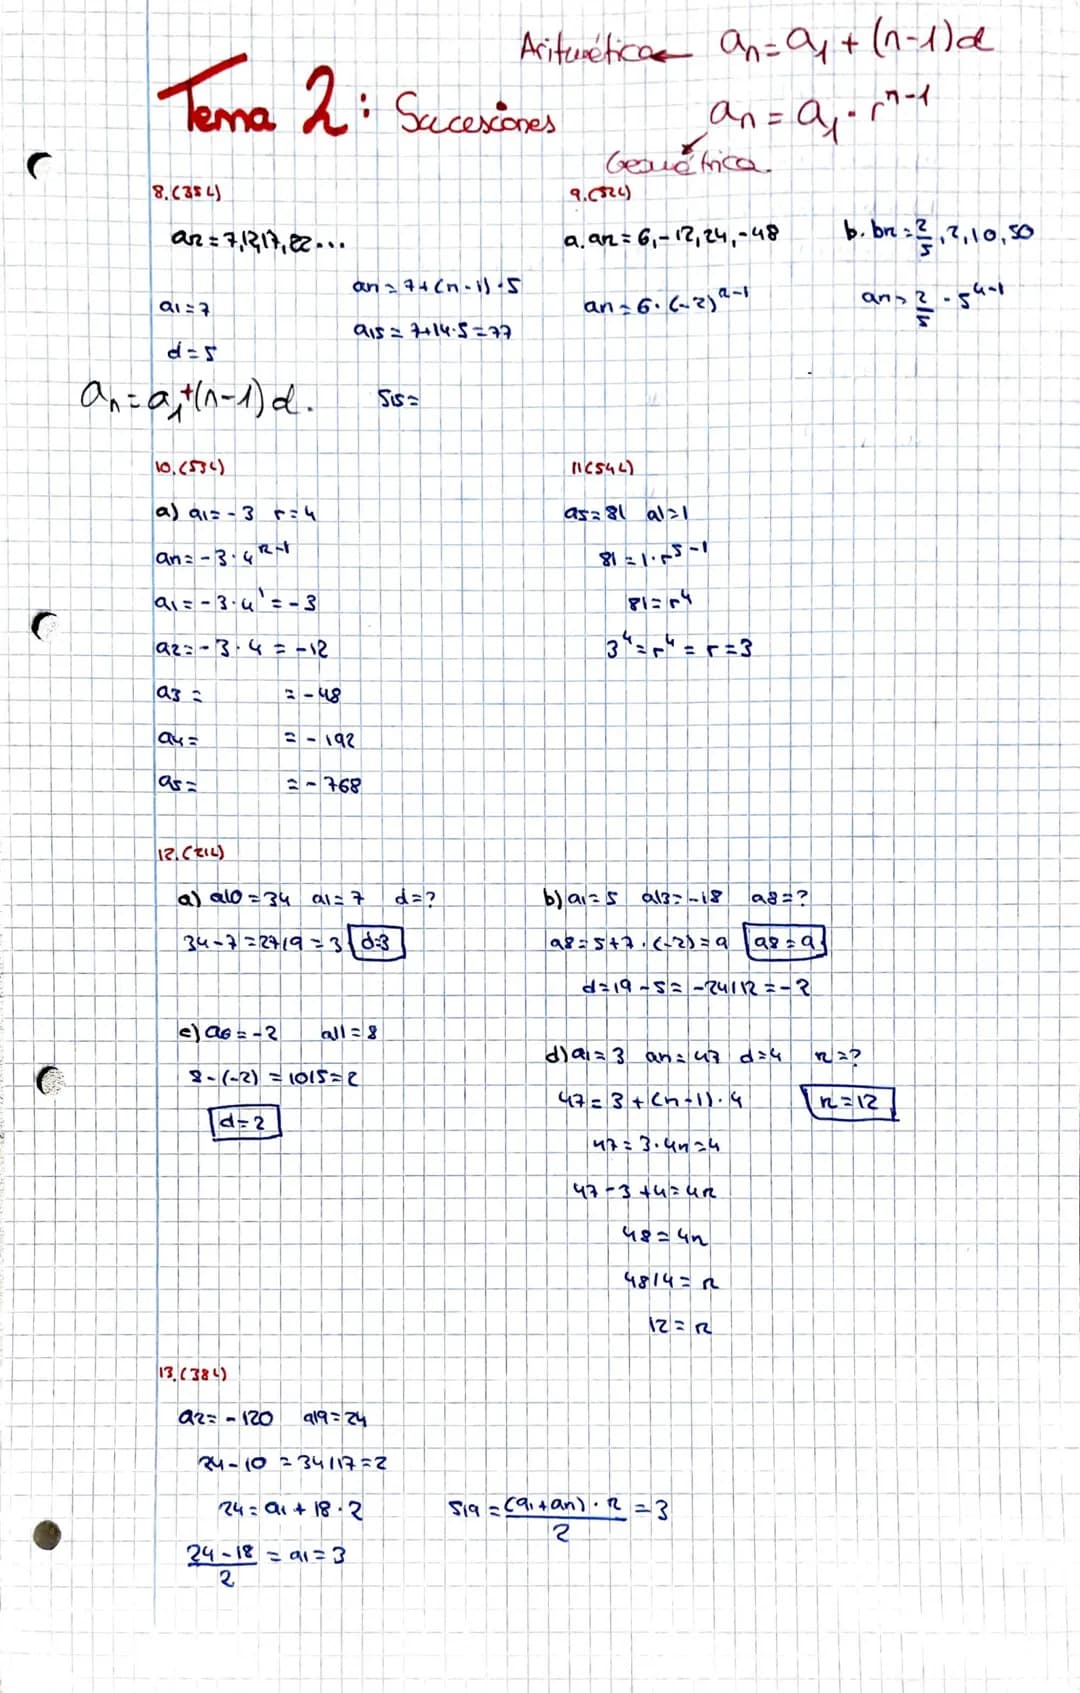 Aritmética← an=a1+(n-1)d
Tema 2: Sucesiones
an=a1·r^n-1
Geométrica.
8.(35L)
an=7,12,17,22...
a1=7
d=5
an=7+(n-1)·5
a15=7+14·5=77
an=a1+(n-1)d.
S15=
9.(52L)
a. an=6,-12,24,-48
an=6·(-2)^n-1
b. bn=2/5,2,10,50
an=2/5·5^n-1
10.(53L)
a) a1=-3 r=4
an=-3·4^n-1
a1=-3·4^1=-3
a2=-3·4=-12
a3= =-48
a4= =-192
a5= =-768
11(54L)
a5=81 a1=1
81=1·r^5-1
81=r^4
3^4=r^4=r=3
12.(21L)
a) a10=34 a1=7 d=?
34-7=27/9=3 d=3
b) a1=5 a13=-18 a8=?
a8=5+7·(-2)=9 a8=9
d=19-5=-24/12=-2
c) a6=-2 a11=8
8-(-2)=10/5=2
d=2
d) a1=3 an=47 d=4 n=?
47=3+(n-1)·4 n=12
47=3·4n=4
47-3+4=4n
48=4n
48/4=n
12=n
13.(38L)
a2=-120 a19=24
24-10=34/17=2
24=a1+18·2
24-18/2=a1=3
S19=(a1+an)·n/2=3